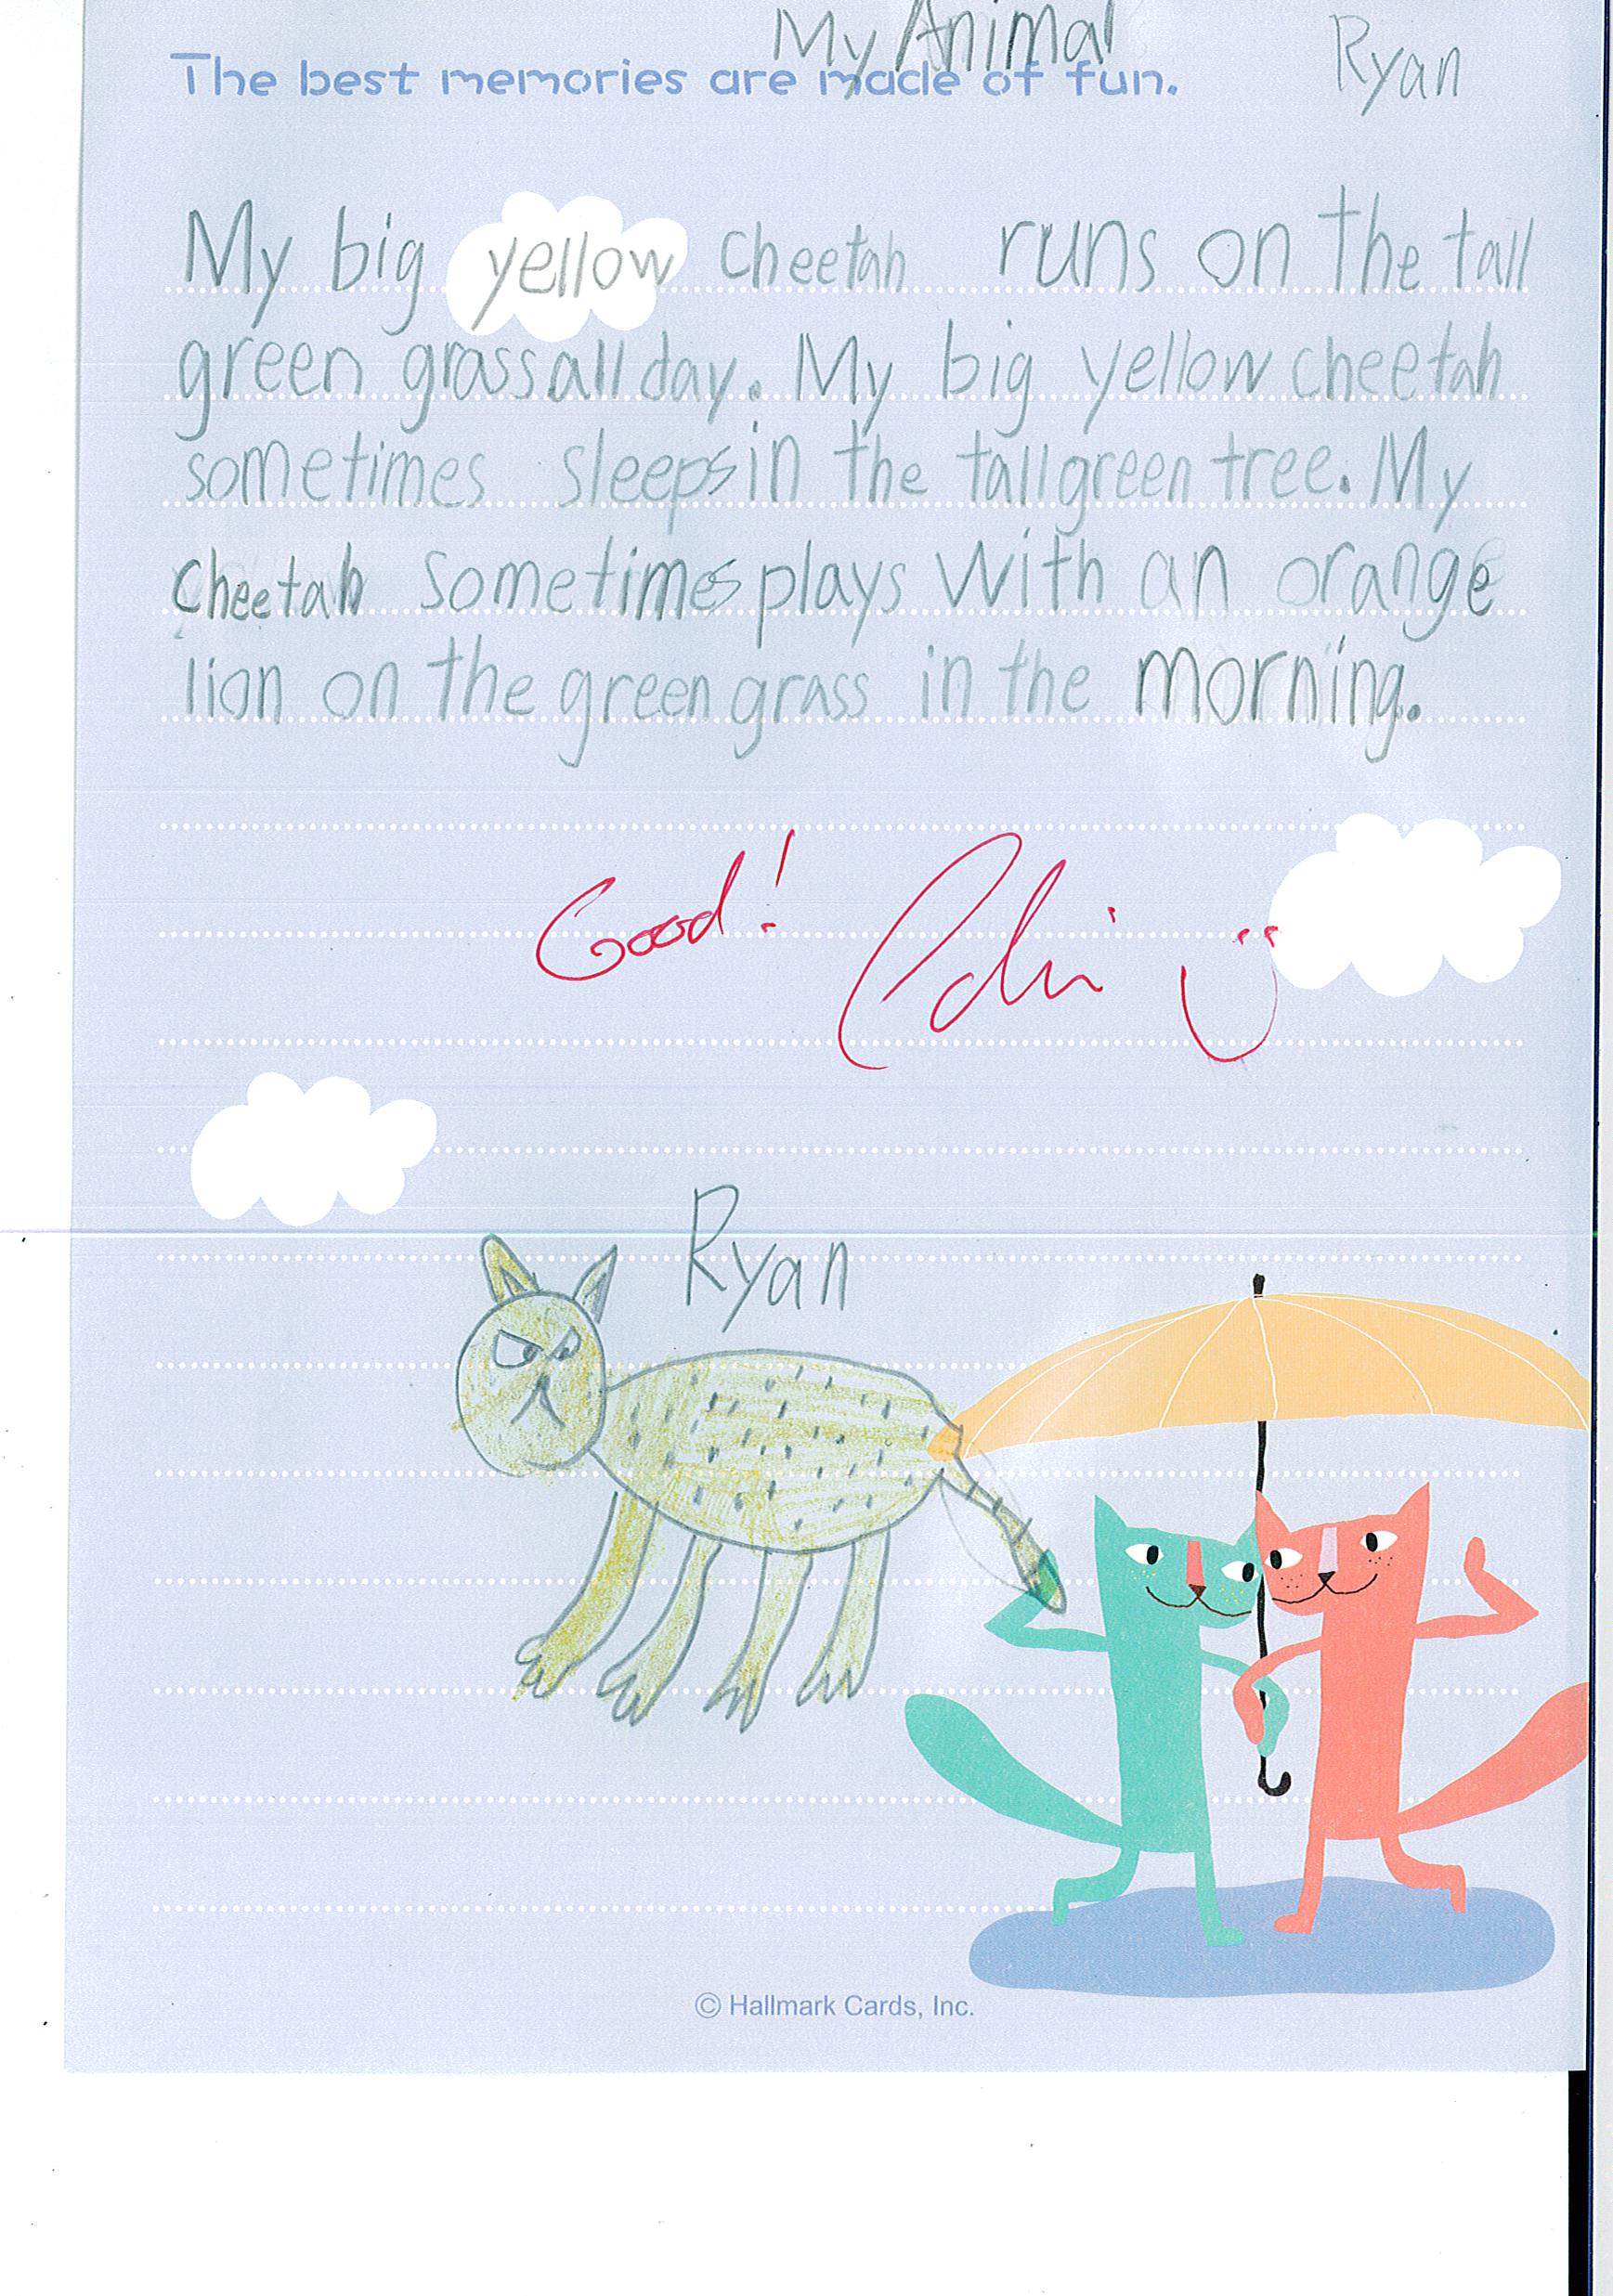 My Animal
Ryan
The best memories are made of fun.
My big yellow cheetah runs on the tall
green grass all day. My big yellow cheetah
sometimes sleeps in the tall green tree. My
cheetah sometimes plays with an orange
lion on the green grass in the morning.
Good!
Ryan
© Hallmark Cards, Inc.